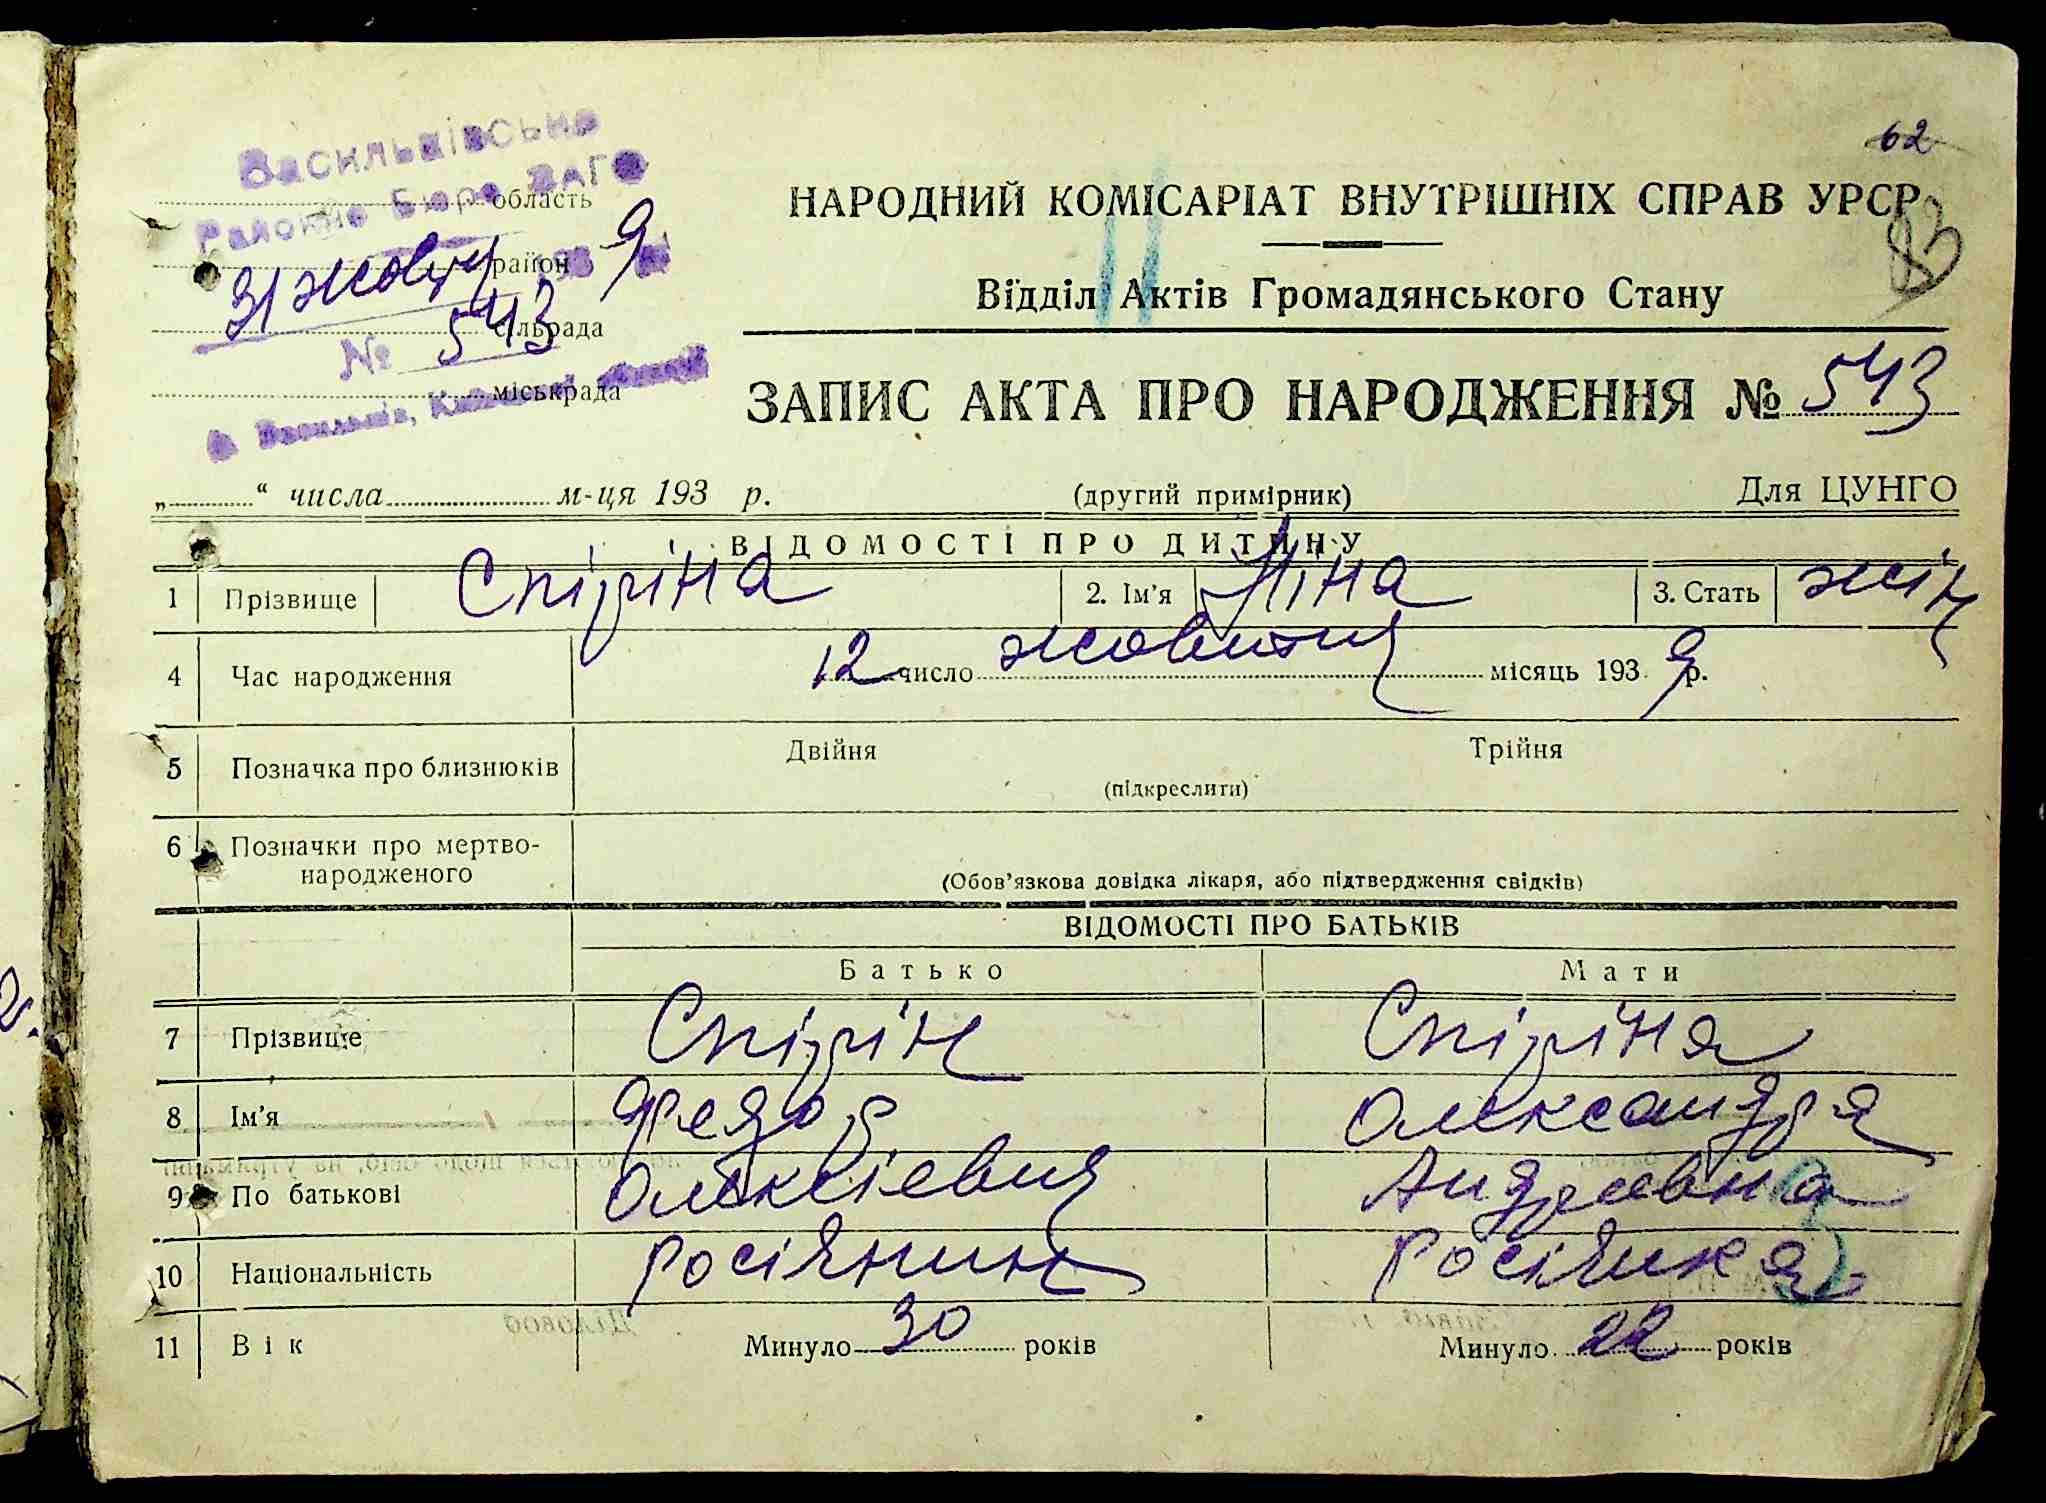 62
83
Васильківське
Районне Бюро ЗАГС
область
31 жовтн район 193 9
сільрада
№ 543
міськрада
м. Васильків,
НАРОДНИЙ КОМІСАРІАТ ВНУТРІШНІХ СПРАВ УРСР
Відділ Актів Громадянського Стану
ЗАПИС АКТА ПРО НАРОДЖЕННЯ № 543
„ “ числа м-ця 193 р. (другий примірник) Для ЦУНГО
ВІДОМОСТІ ПРО ДИТИНУ
1 Прізвище Спіріна 2. Ім'я Ніна 3. Стать жін
4 Час народження 12 число жовтня місяць 1939 р.
5 Позначка про близнюків Двійня Трійня
(підкреслити)
6 Позначки про мертво-
народженого (Обов'язкова довідка лікаря, або підтвердження свідків)
ВІДОМОСТІ ПРО БАТЬКІВ
Батько Мати
7 Прізвище Спірін Спіріна
8 Ім'я Федор Олександра
9 По батькові Олексієвич Андреевна
10 Національність росіянин росіянка
11 Вік Минуло 30 років Минуло 22 років